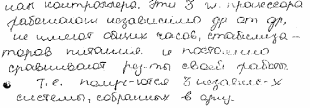 нал контроллера. Эти 3 м. процессора
работают независимо др от др,
не имеют общих часов, стабилиза-
торов питания и постоянно
сравнивают рез-ты своей работы.
Т.е. получ-ются 3 независ-х
системы, собранных в одну.